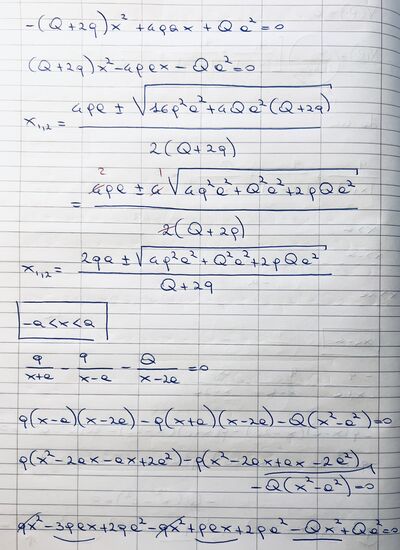 -(Q+2q)x² + 4qax + Qa² = 0
(Q+2q)x² - 4qax - Qa² = 0
x₁,₂ = (4qa ± √(16q²a² + 4Qa²(Q+2q))) / (2(Q+2q))
= (4qa ± 2√(4q²a² + Q²a² + 2qQa²)) / (2(Q+2q))
x₁,₂ = (2qa ± √(4q²a² + Q²a² + 2qQa²)) / (Q+2q)
-a < x < a
q/(x+a) - q/(x-a) - Q/(x-2a) = 0
q(x-a)(x-2a) - q(x+a)(x-2a) - Q(x²-a²) = 0
q(x²-2ax-ax+2a²) - q(x²-2ax+ax-2a²)
-Q(x²-a²) = 0
qx² - 3qax + 2qa² - qx² + qax + 2qa² - Qx² + Qa² = 0